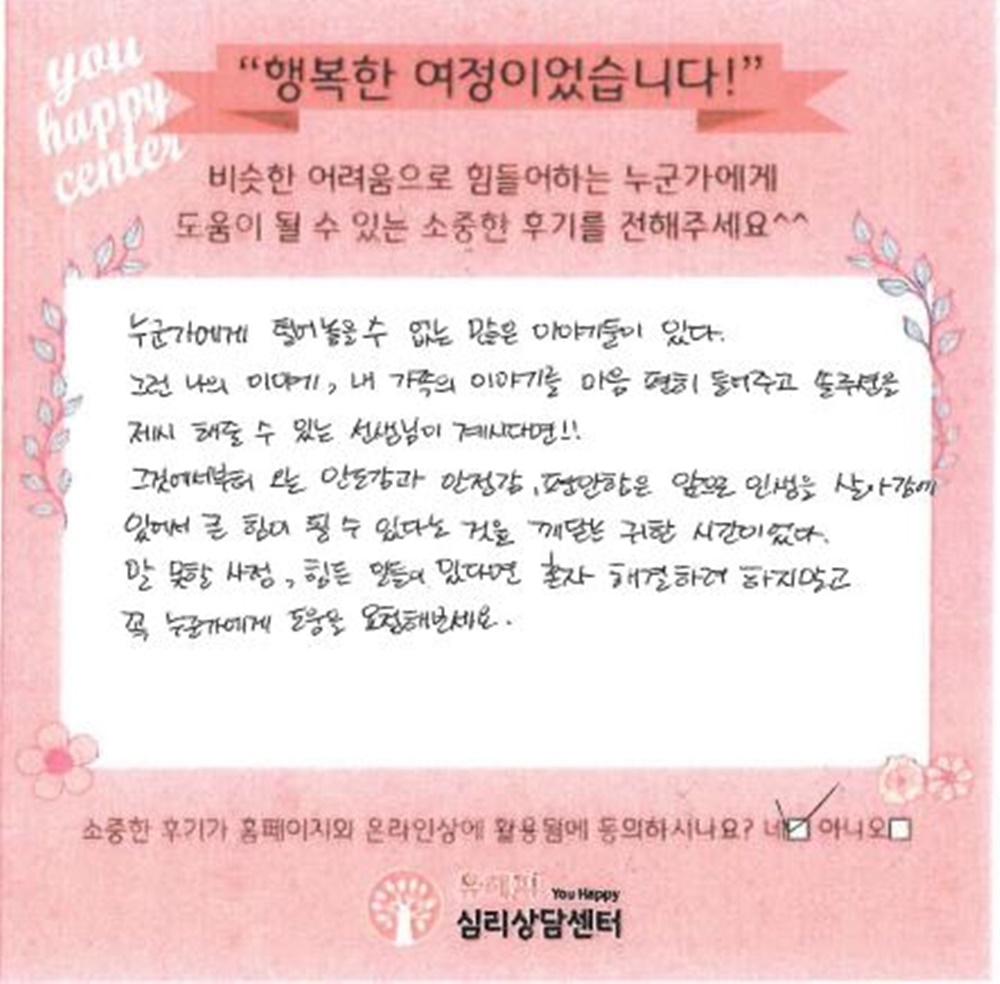 you
happy
center
“행복한 여정이었습니다!”
비슷한 어려움으로 힘들어하는 누군가에게
도움이 될 수 있는 소중한 후기를 전해주세요^^
누군가에게 털어놓을 수 없는 많은 이야기들이 있다.
그런 나의 이야기, 내 가족의 이야기를 마음 편히 들어주고 솔루션을
제시 해줄 수 있는 선생님이 계시다면!!
그것에서부터 오는 안도감과 안정감, 편안함은 앞으로 인생을 살아감에
있어서 큰 힘이 될 수 있다는 것을 깨닫는 귀한 시간이었다.
말 못할 사정, 힘든 일들이 있다면 혼자 해결하려 하지말고
꼭 누군가에게 도움을 요청해보세요.
소중한 후기가 홈페이지와 온라인상에 활용됨에 동의하시나요? 네 아니오
유해피 You Happy
심리상담센터